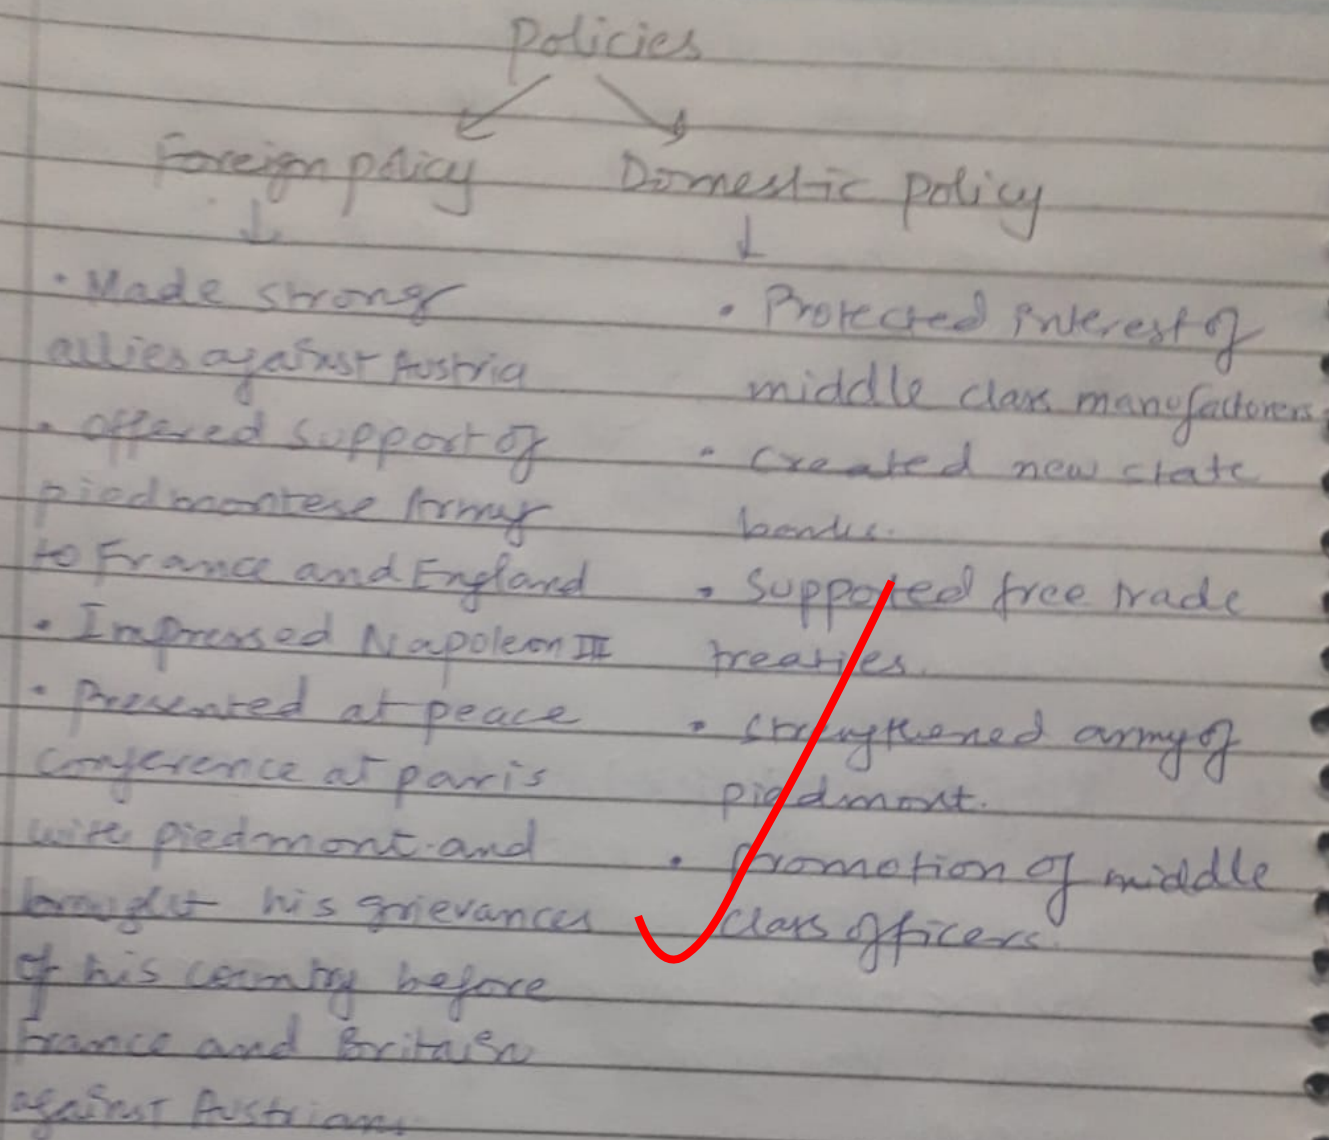 Policies
Foreign policy
Domestic policy
• Made strong
allies against Austria
• offered support of
piedmontese Army
to France and England
• Impressed Napoleon III
• Presented at peace
conference at paris
with piedmont and
brought his grievances
of his country before
France and Britain
against Austrians
• Protected interest of
middle class manufacturers
• Created new state
banks.
• Supported free trade
treaties.
• Strengthened army of
piedmont.
• Promotion of middle
class officers.